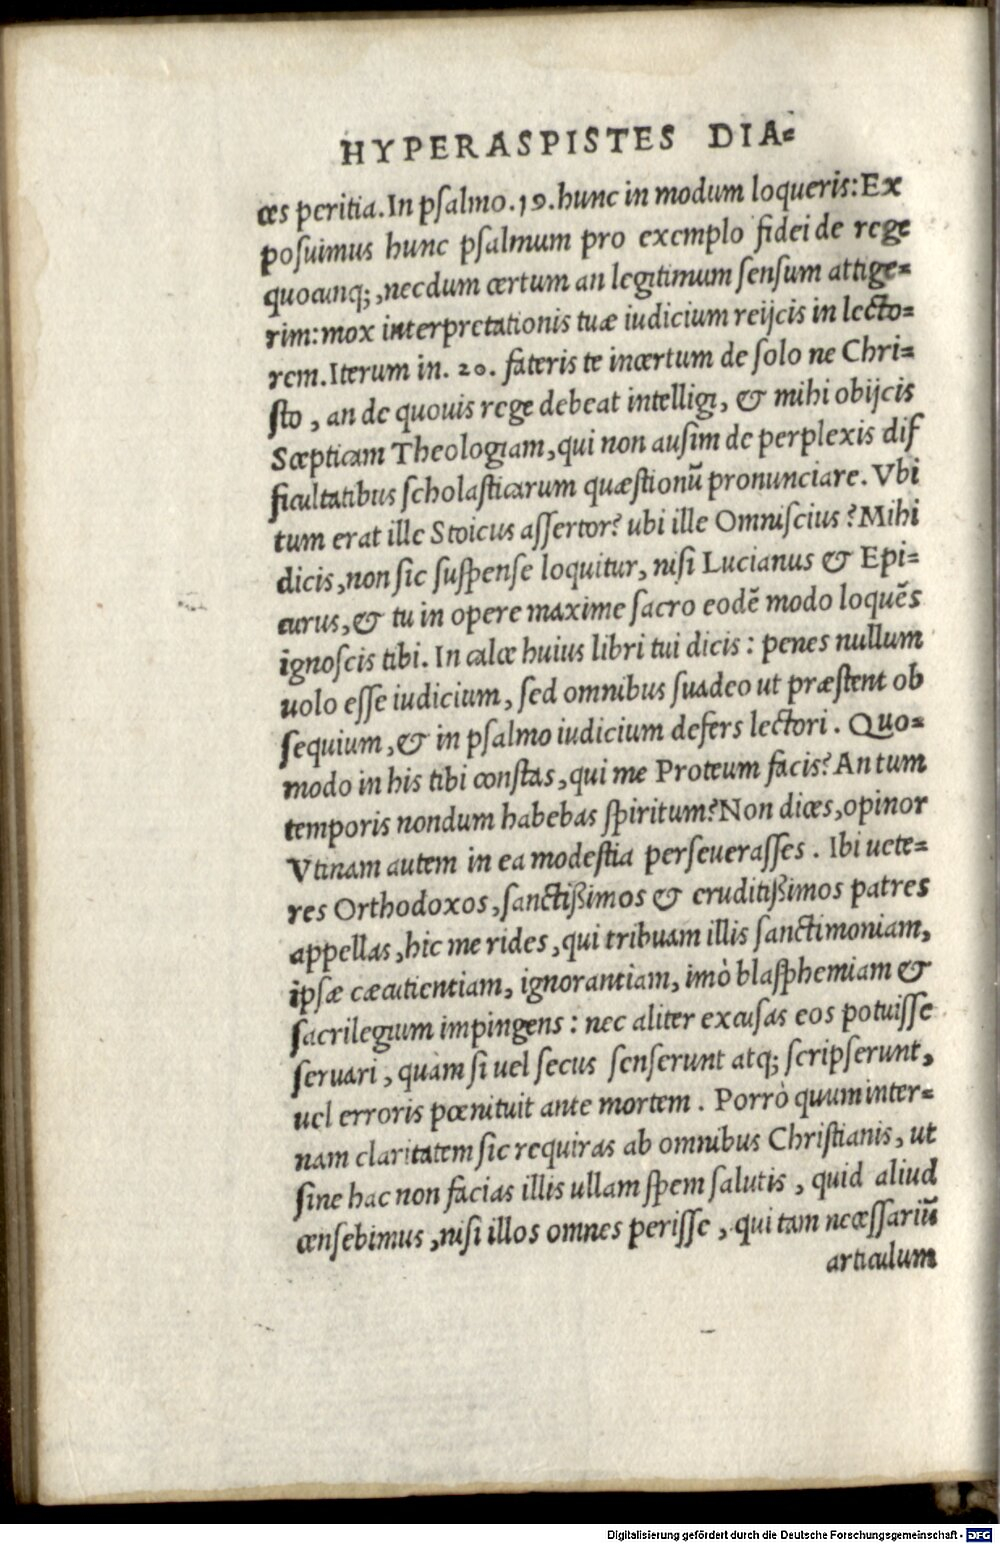 HYPERASPISTES DIA-
ces peritia. In psalmo. 19. hunc in modum loqueris: Ex
posuimus hunc psalmum pro exemplo fidei de rege
quocunq;, necdum certum an legitimum sensum attige-
rim: mox interpretationis tuæ iudicium reijcis in lecto-
rem. Iterum in. 20. fateris te incertum de solo ne Chri-
sto, an de quouis rege debeat intelligi, & mihi obijcis
Scepticam Theologiam, qui non ausim de perplexis dif
ficultatibus scholasticarum quæstionũ pronunciare. Vbi
tum erat ille Stoicus assertor? ubi ille Omniscius? Mihi
dicis, non sic suspense loquitur, nisi Lucianus & Epi-
curus, & tu in opere maxime sacro eodẽ modo loquẽs
ignoscis tibi. In calce huius libri tui dicis: penes nullum
uolo esse iudicium, sed omnibus suadeo ut præstent ob
sequium, & in psalmo iudicium defers lectori. Quo-
modo in his tibi constas, qui me Proteum facis? An tum
temporis nondum habebas spiritum? Non dices, opinor
Vtinam autem in ea modestia perseuerasses. Ibi uete-
res Orthodoxos, sanctißimos & eruditißimos patres
appellas, hic me rides, qui tribuam illis sanctimoniam,
ipsæ cæcutientiam, ignorantiam, imò blasphemiam &
sacrilegium impingens: nec aliter excusas eos potuisse
seruari, quàm si uel secus senserunt atq; scripserunt,
uel erroris pœnituit ante mortem. Porrò quum inter-
nam claritatem sic requiras ab omnibus Christianis, ut
sine hac non facias illis ullam spem salutis, quid aliud
censebimus, nisi illos omnes perisse, qui tam necessariũ
articulum
Digitalisierung gefördert durch die Deutsche Forschungsgemeinschaft - DFG